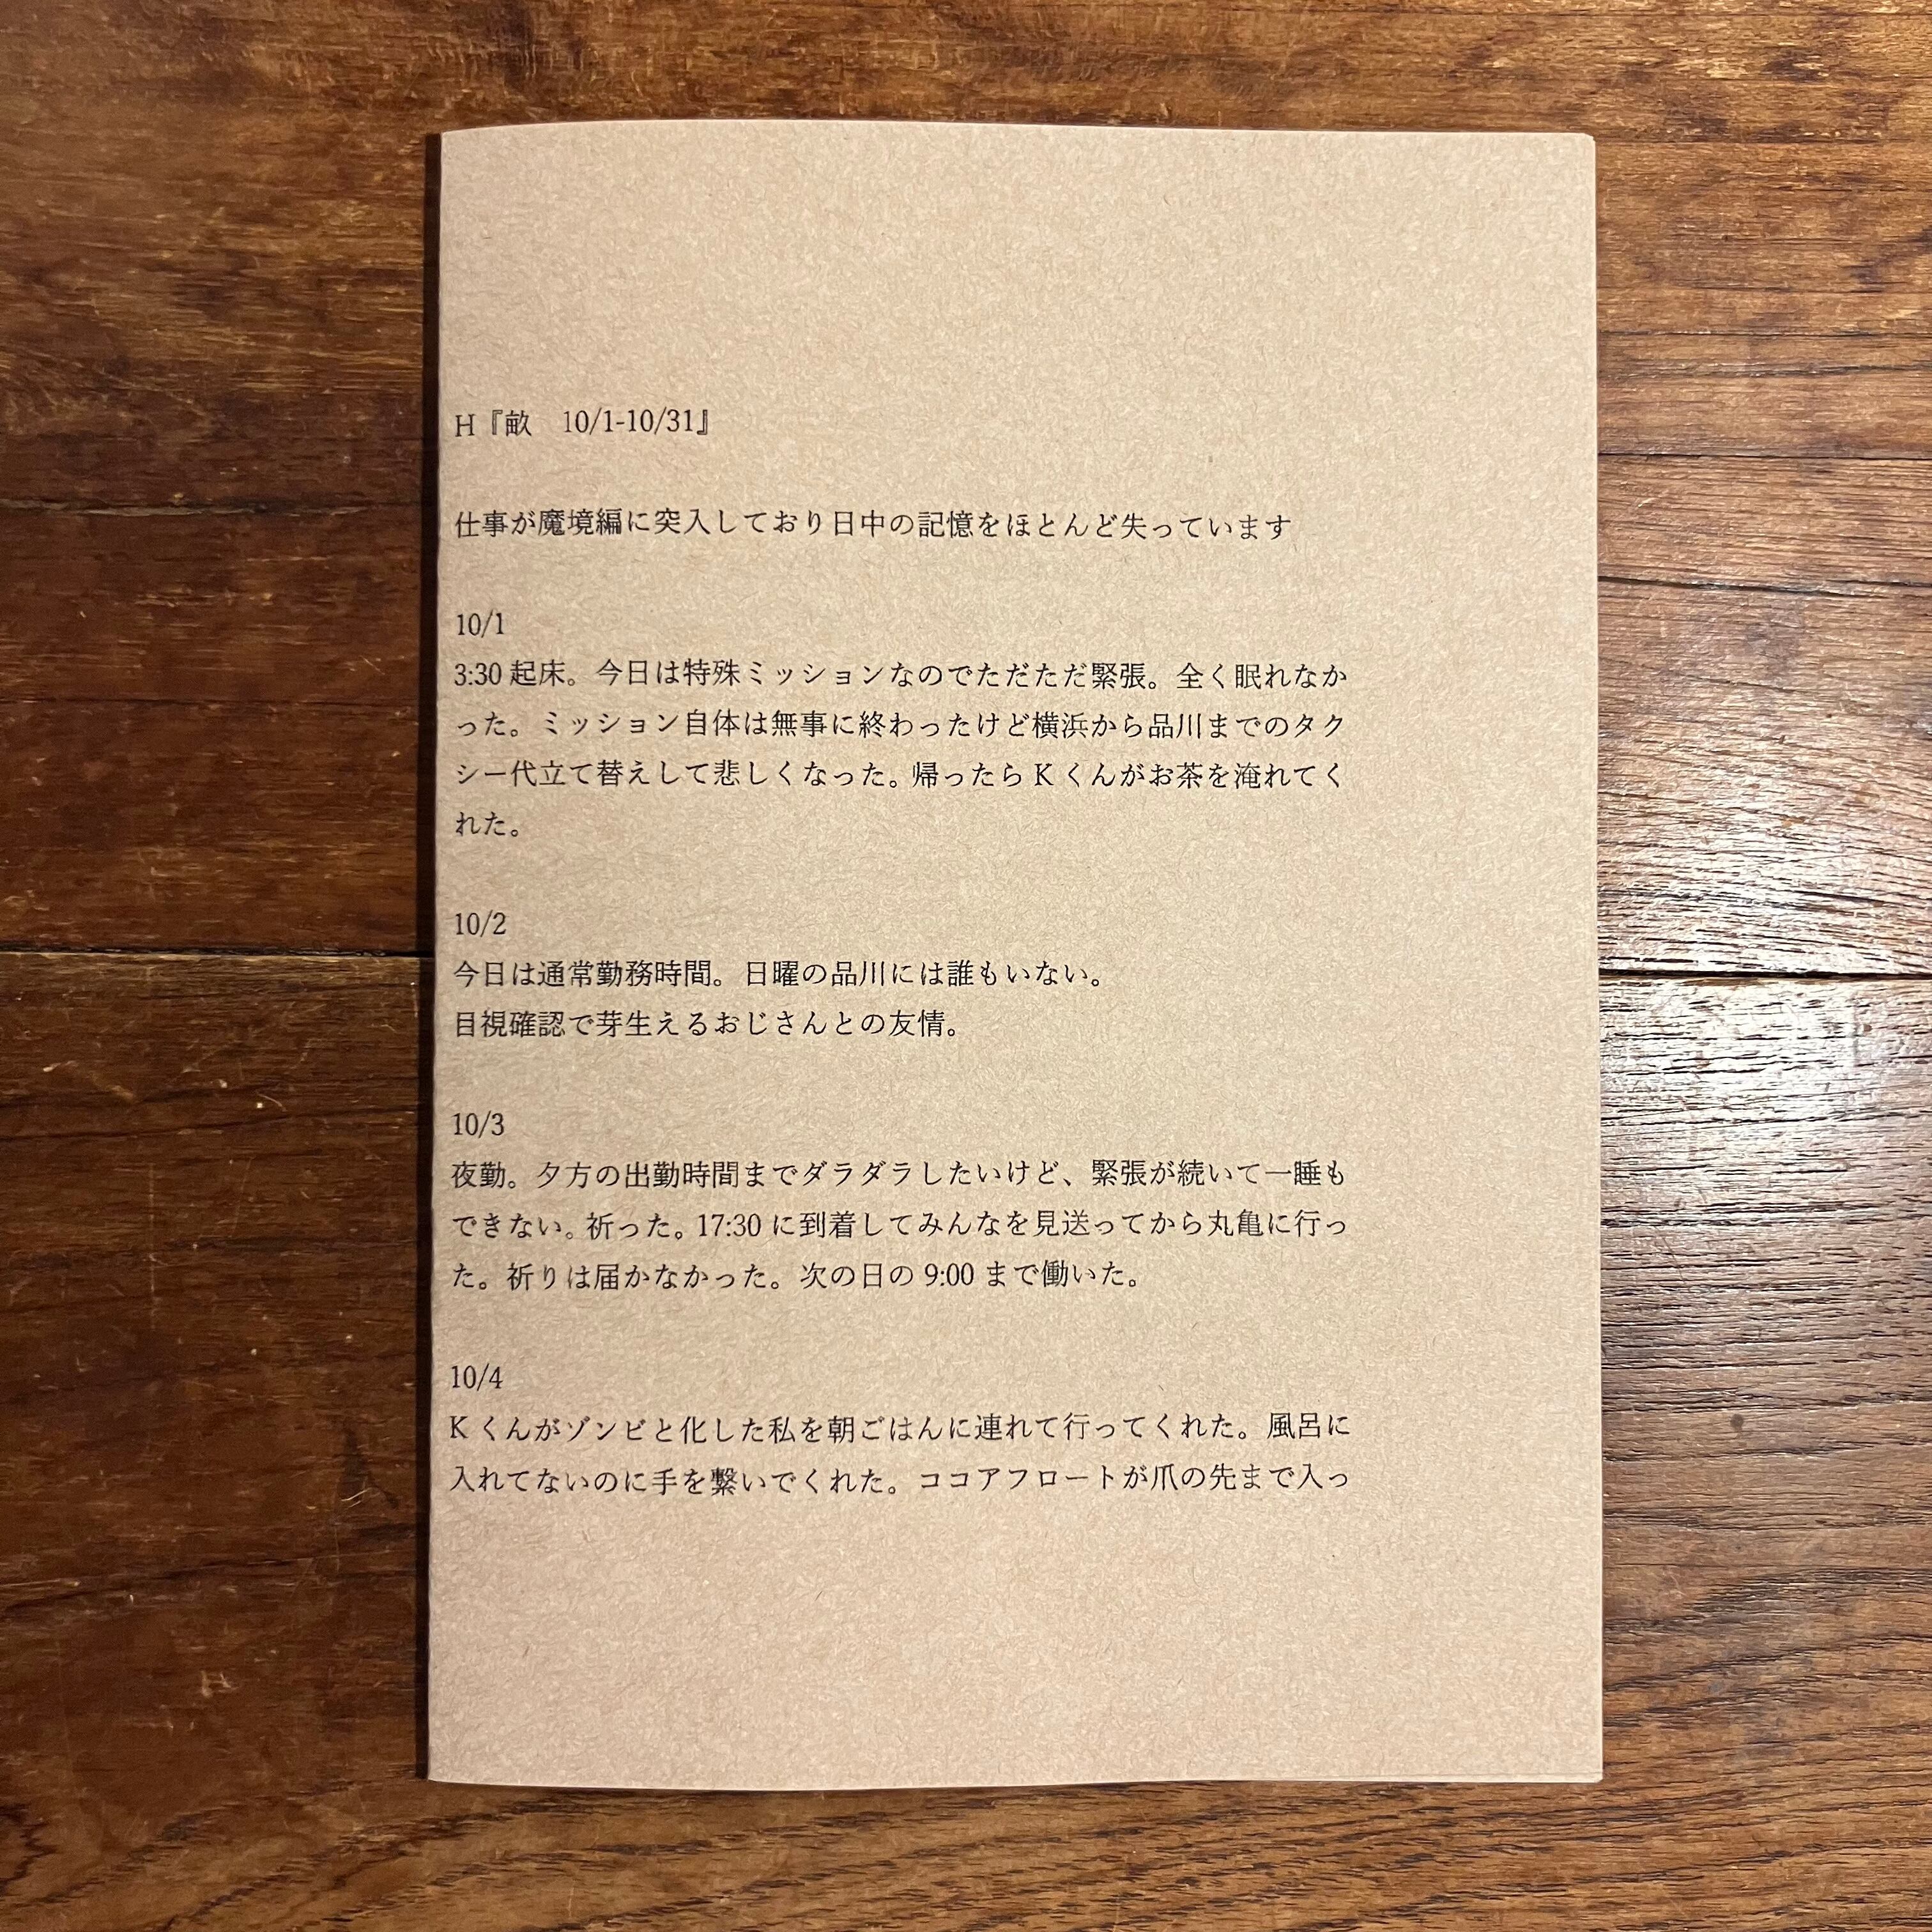 H『畝　10/1-10/31』
仕事が魔境編に突入しており日中の記憶をほとんど失っています
10/1
3:30 起床。今日は特殊ミッションなのでただただ緊張。全く眠れなか
った。ミッション自体は無事に終わったけど横浜から品川までのタク
シー代立て替えして悲しくなった。帰ったら K くんがお茶を淹れてく
れた。
10/2
今日は通常勤務時間。日曜の品川には誰もいない。
目視確認で芽生えるおじさんとの友情。
10/3
夜勤。夕方の出勤時間までダラダラしたいけど、緊張が続いて一睡も
できない。祈った。17:30 に到着してみんなを見送ってから丸亀に行っ
た。祈りは届かなかった。次の日の 9:00 まで働いた。
10/4
K くんがゾンビと化した私を朝ごはんに連れて行ってくれた。風呂に
入れてないのに手を繋いでくれた。ココアフロートが爪の先まで入っ